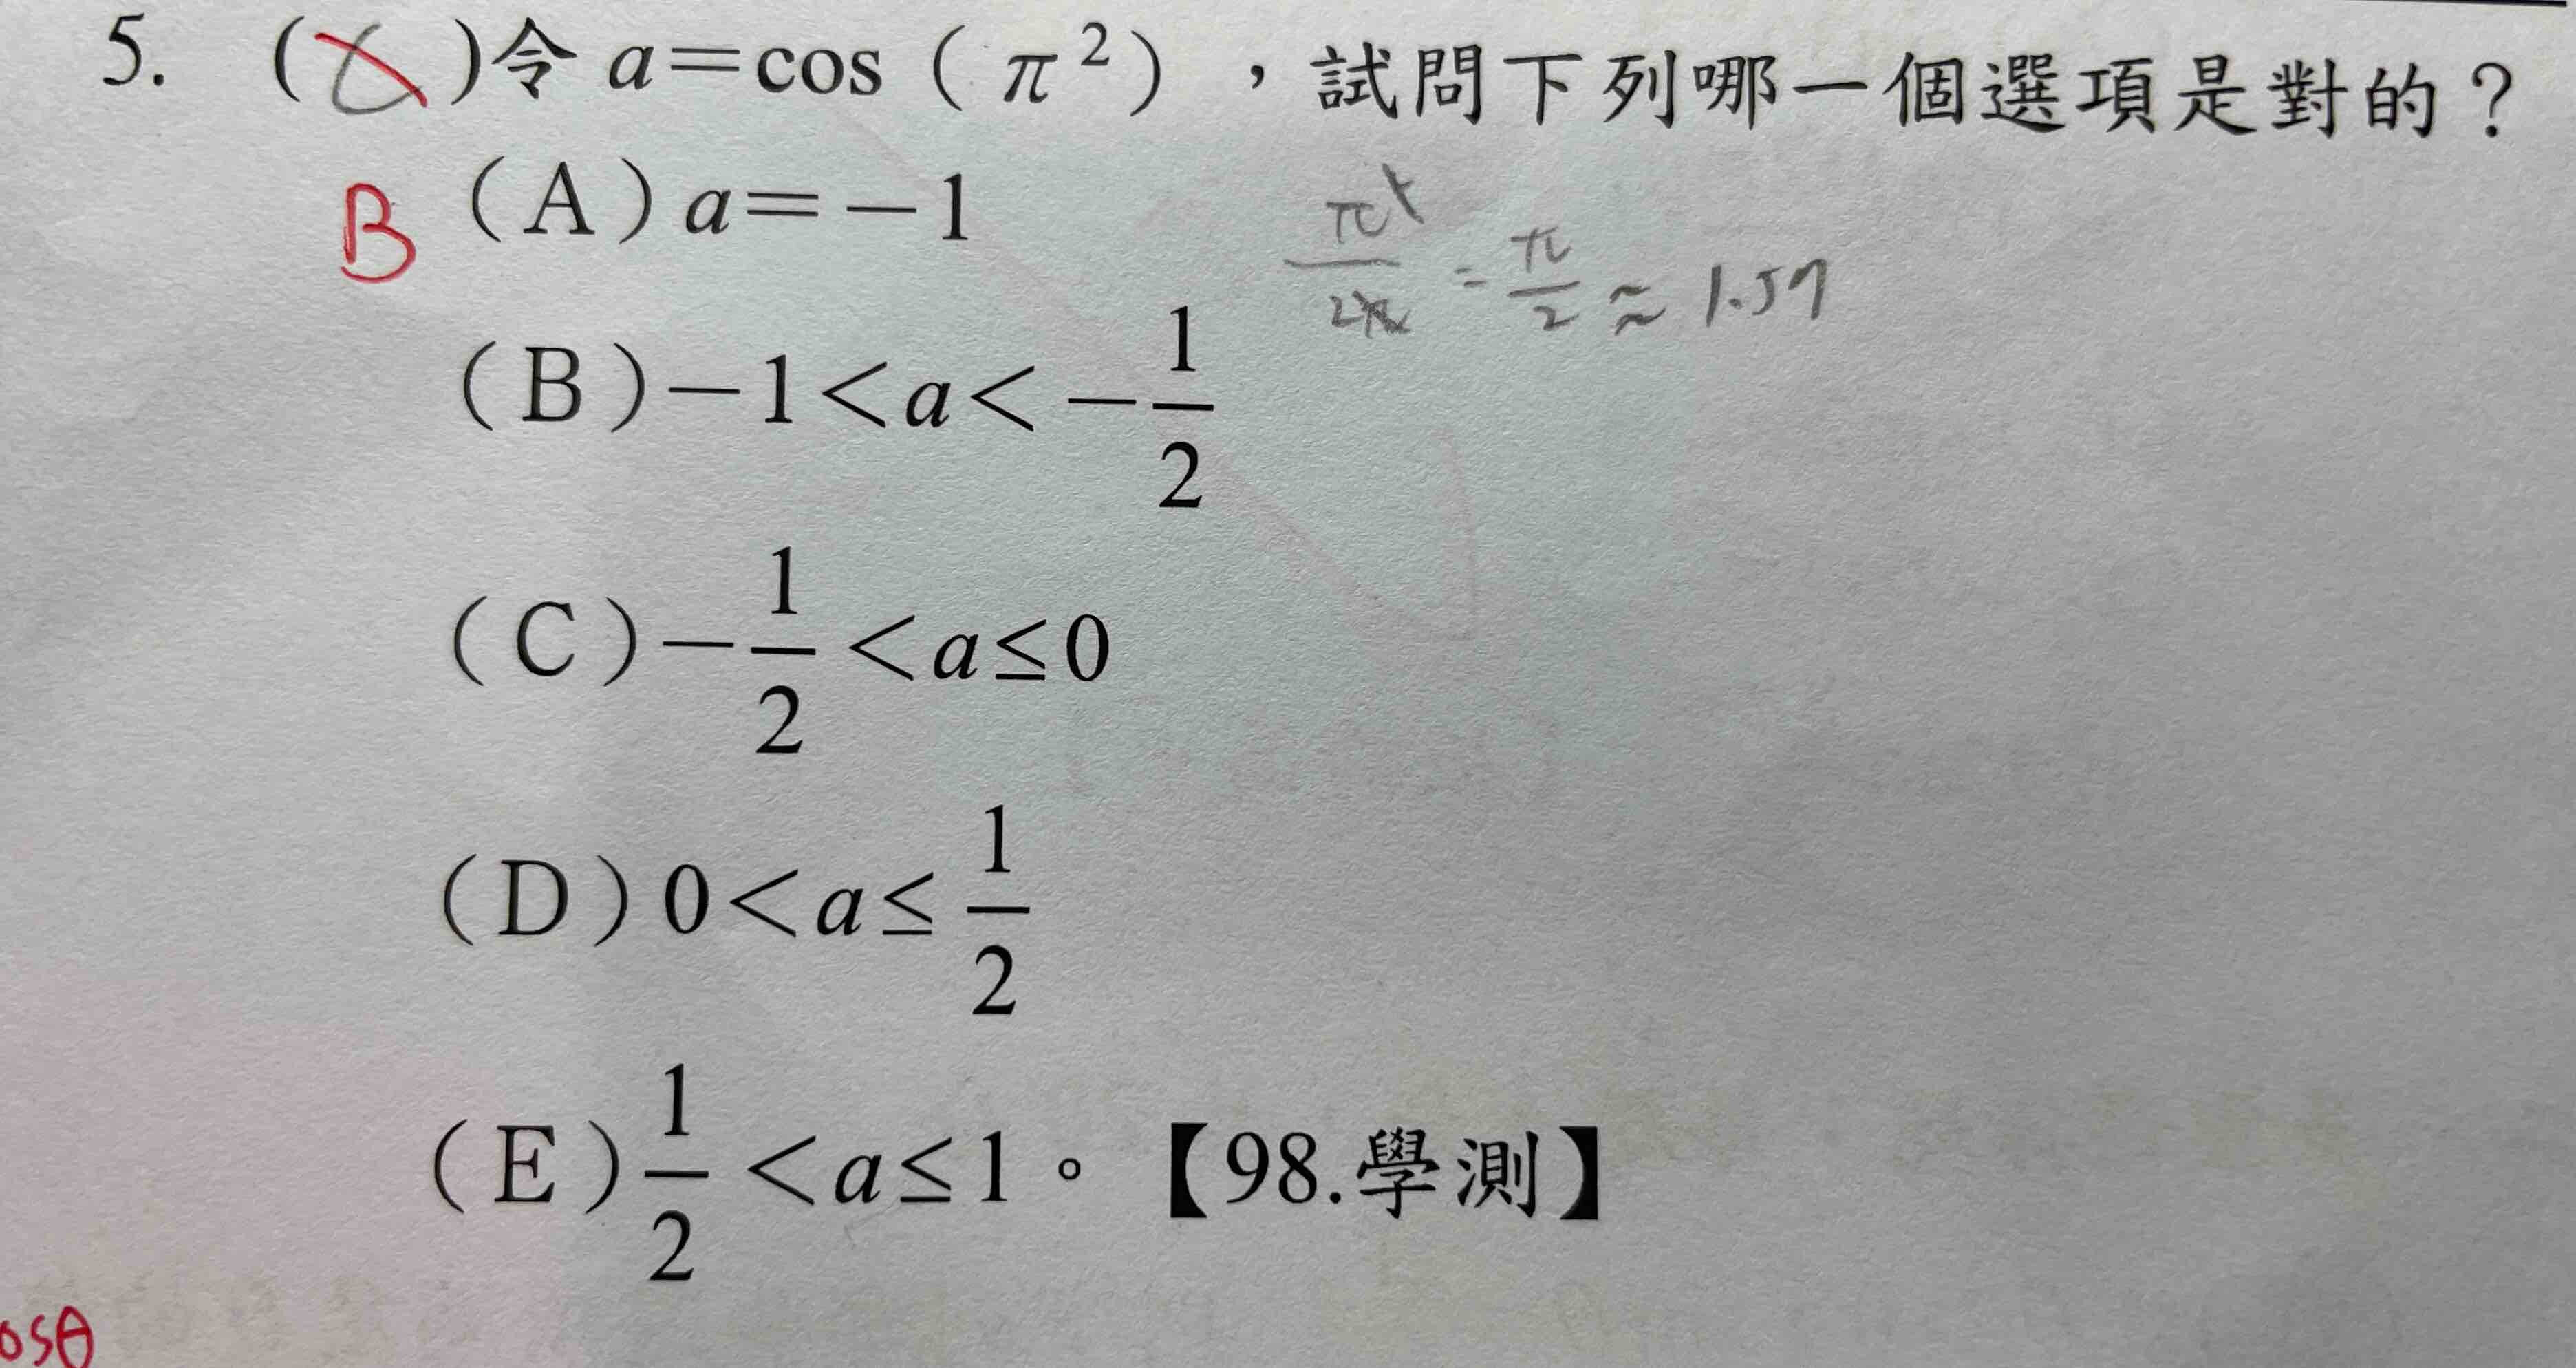 5. (C)令 a=cos（π²），試問下列哪一個選項是對的？
B （A）a=－1
π²/2π = π/2 ≈ 1.57
（B）－1＜a＜－1/2
（C）－1/2＜a≤0
（D）0＜a≤1/2
（E）1/2＜a≤1。【98.學測】
osθ